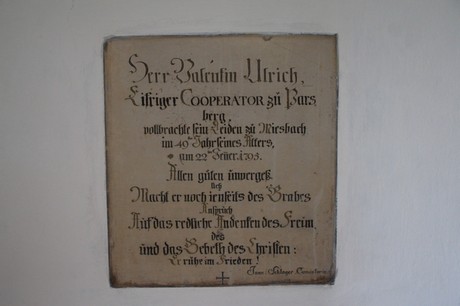 Herr Valentin Ulrich,
Eifriger COOPERATOR zu Pars
berg,
vollbrachte sein Leiden zu Miesbach
im 49ten Jahr seines Alters,
am 22ten Jener 1795.
Allen guten unvergeß
lich
Macht er noch jenseits des Grabes
Anspruch
Auf das redliche Andenken des Freün
des
und das Gebeth des Christen:
Er ruhe im Frieden!